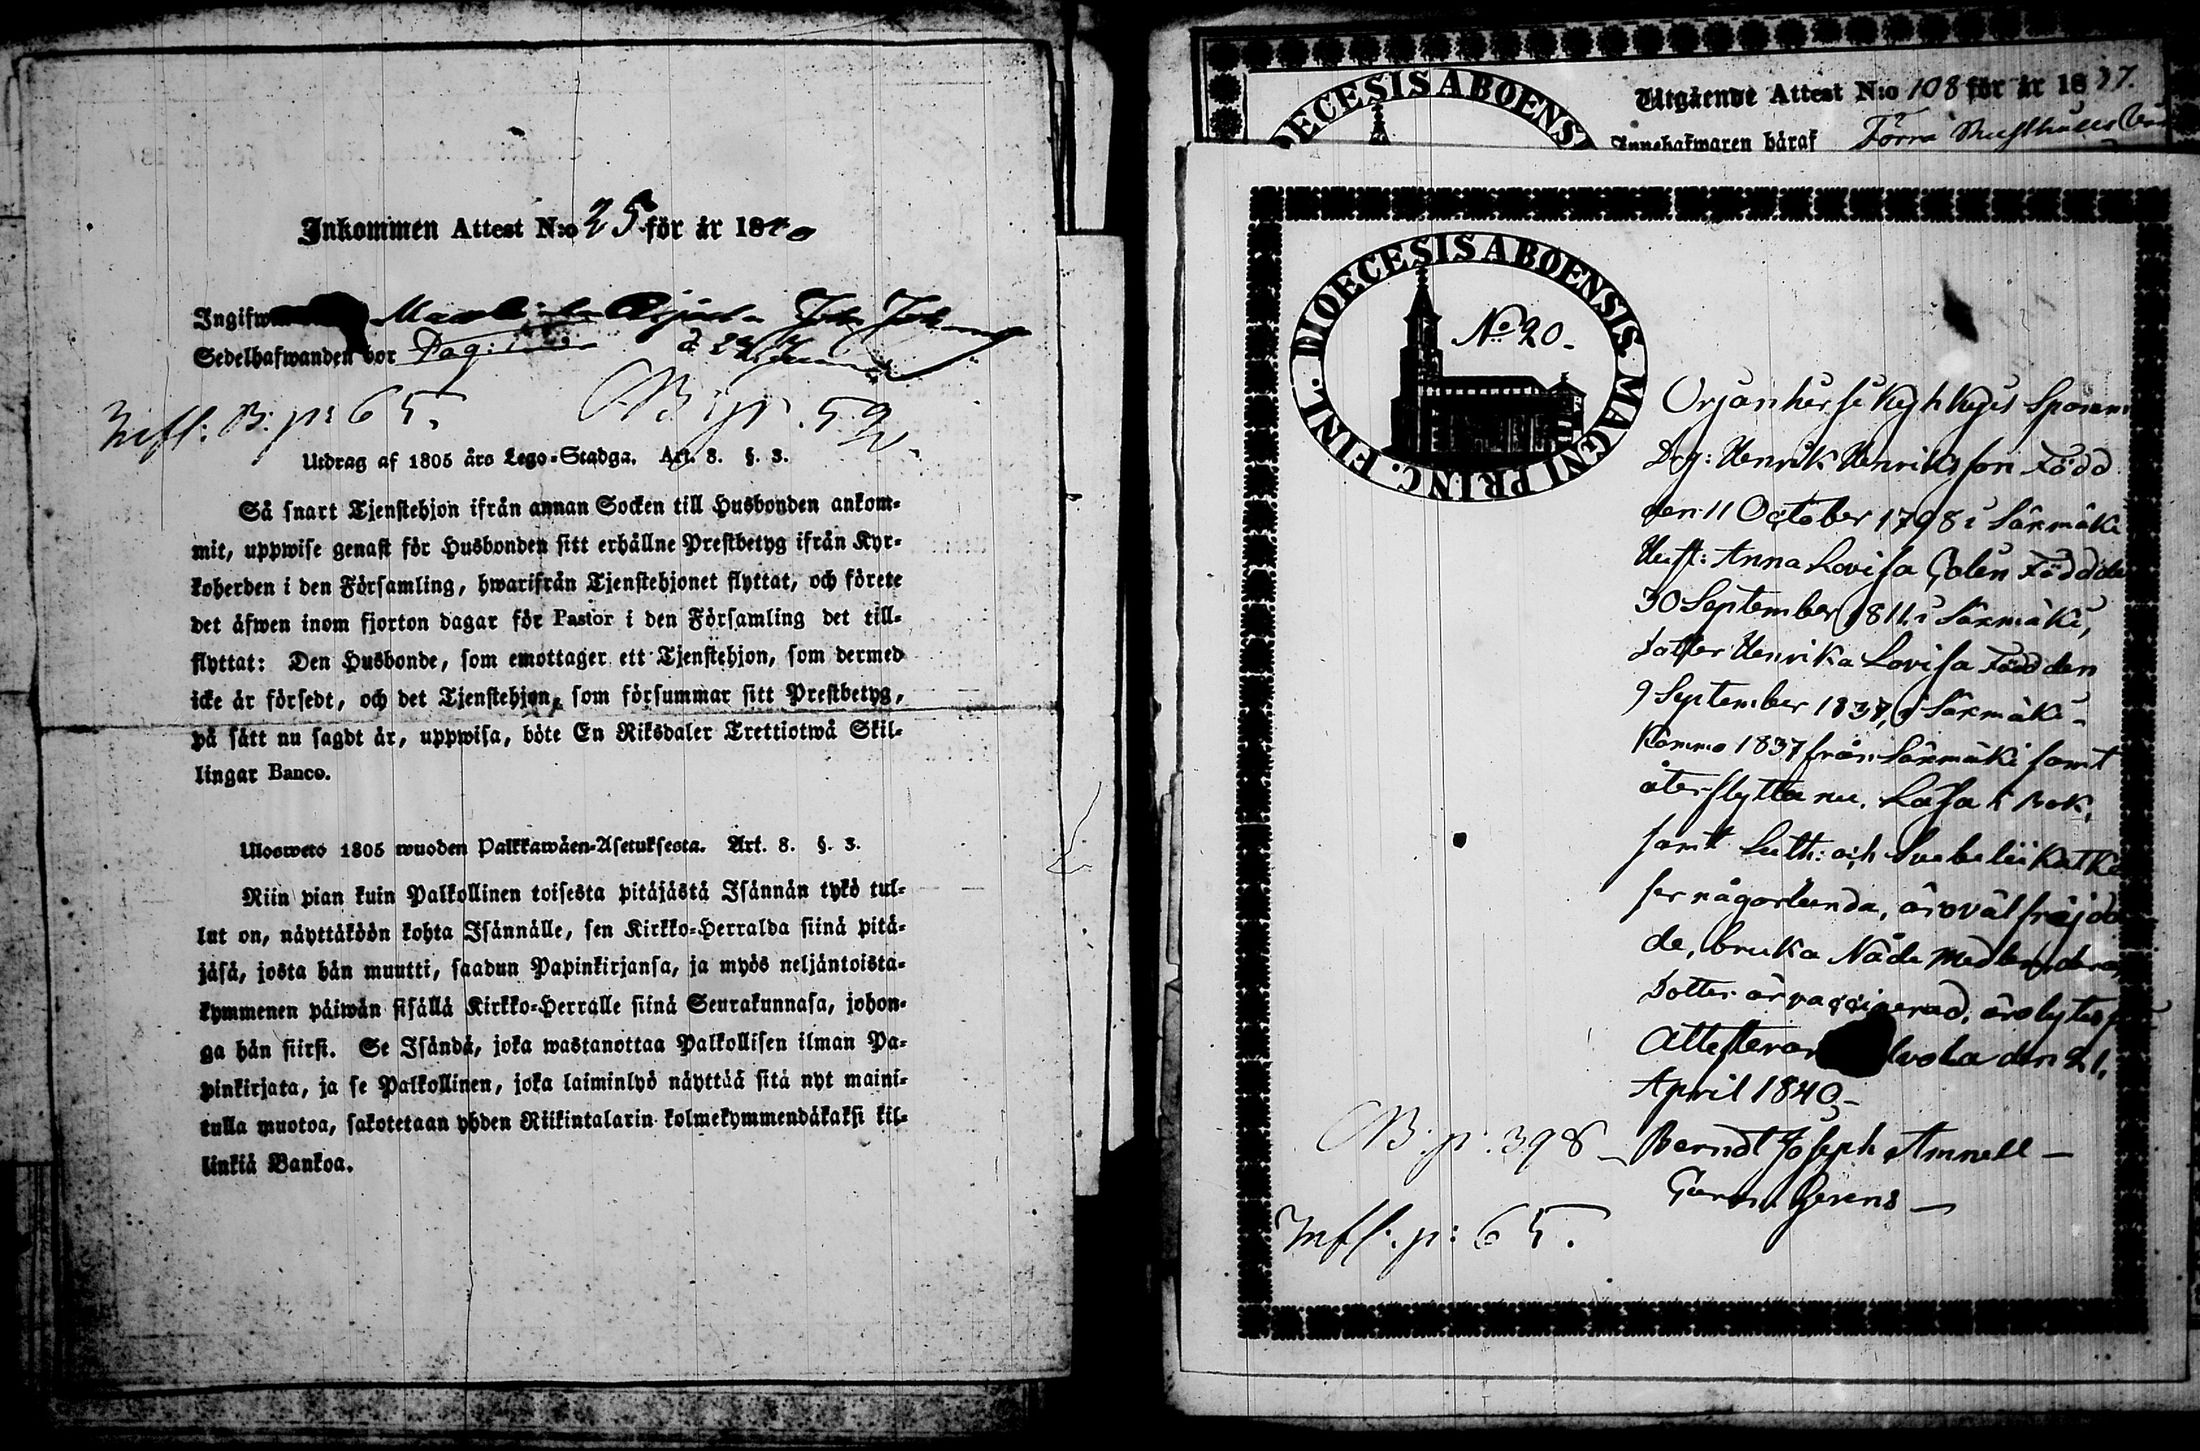 Inkommen Attest N:o 25 för år 1840
Ingifw
Sedelhafwanden bor
Infl: B: p: 65. CB: p: 59
Utdrag af 1805 års Lego-Stadga. Art. 8. §. 3.
Så snart Tjenstehjon ifrån annan Socken till Husbonden ankom-
mit, uppwise genast för Husbonden sitt erhållne Prestbetyg ifrån Kyr-
koherden i den Församling, hwarifrån Tjenstehjonet flyttat, och förete
det äfwen inom fjorton dagar för Pastor i den Församling det till-
flyttat: Den Husbonde, som emottager ett Tjenstehjon, som dermed
icke är försedt, och det Tjenstehjon, som försummar sitt Prestbetyg,
på sätt nu sagdt är, uppwisa, böte En Riksdaler Trettiotwå Skil-
lingar Banco.
Ulosweto 1805 wuoden Palkkawäen-Asetuksesta. Art. 8. §. 3.
Niin pian kuin Palkollinen toisesta pitäjästä Isännän tykö tul-
lut on, näyttäköön kohta Isännälle, sen Kirkko-Herralda siinä pitä-
jäsä, josta hän muutti, saadun Papinkirjansa, ja myös neljäntoista-
kymmenen päiwän sisällä Kirkko-Herralle siinä Seurakunnasa, johon-
ga hän siirsi. Se Isändä, joka wastanottaa Palkollisen ilman Pa-
pinkirjata, ja se Palkollinen, joka laiminlyö näyttää sitä nyt maini-
tulla muotoa, sakotetaan yhden Riikintalarin kolmekymmendäkaksi kil-
linkiä Bankoa.
DIOECESIS ABOENSIS
Utgående Attest N:o 108 för år 1837.
Innehafwaren häraf Förra
DIOECESIS ABOENSIS. MAGNI PRINC. FINL.
No 20
Drg: Henrik Henriksson Född
den 11 October 1798 i Säxmäki
Hust: Anna Lovisa Galen Född de
30 September 1811 i Säxmäki,
dotter Henrika Lovisa Född den
9 September 1837, i Säxmäki
Komme 1837 från Säxmäki samt
återflytta nu. Läsa i Bok,
samt Luth: och Svebelii Katke
ser någorlunda, äro väl fräjda
de, bruka Nåde medlen, deras
Dotter är vaccinerad, äro lytes
Attesterar den 21.
April 1840
CB: p: 398 Berndt Joseph Amnell
Infl: p: 65.